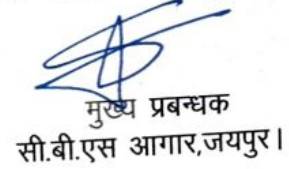 मुख्य प्रबन्धक
सी.बी.एस आगार,जयपुर।